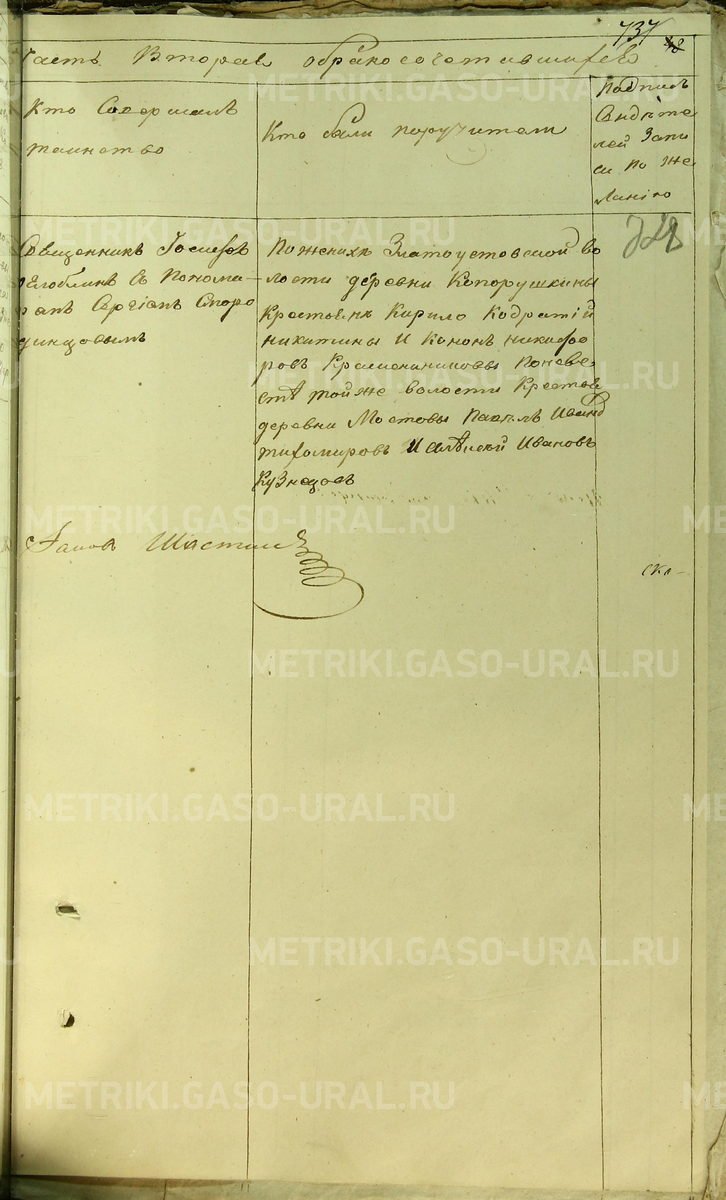 737
48
Часть Вторая обракосочетавшихся
Кто Совершалъ
таинство
Кто были поручители
Подпись
Свидѣте
лей Запи
си по же
ланію
Священникъ Иосифъ
съ Понома
Сергіемъ Сморо
динцовымъ
Поженихѣ Златоустовской во
лости деревни Копорушкины
Крестьянъ Кирило Кодратій
никитины И Кононъ никифо
ровъ Поневе
стѣ тойже волости Крестья
деревни Мостовы Павелъ Иванъ
тихомировъ И Алѣксѣй Ивановъ
Кузнецовъ
Шастин
METRIKI.GASO-URAL.RU